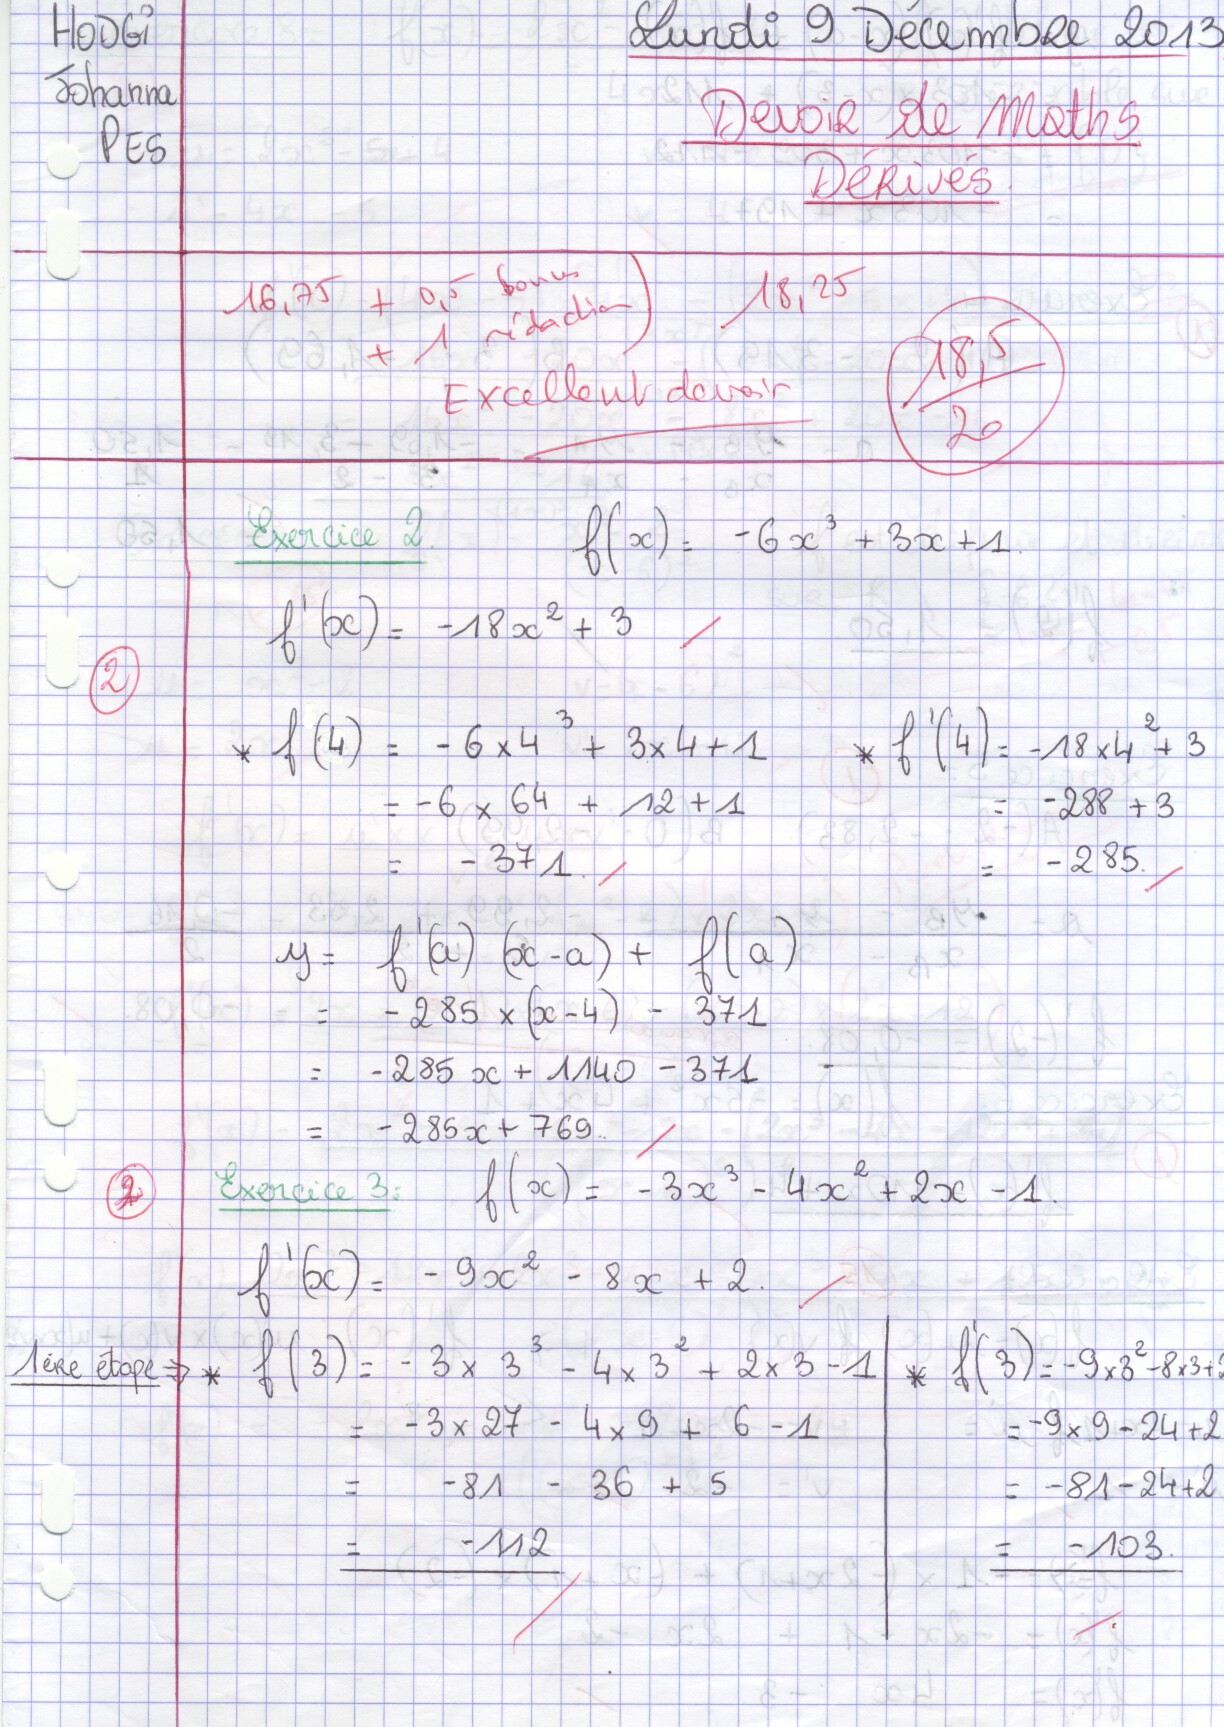 HODGi
Johanna
PES
Lundi 9 Décembre 2013
Devoir de Maths
Dérivés.
16,75 + 0,5 bonus
+ 1 rédaction
18,25
18,5
20
Excellent devoir
Exercice 2. f(x) = -6x³ + 3x + 1.
f'(x) = -18x² + 3
2
* f(4) = -6 × 4³ + 3×4+1
= -6 × 64 + 12 + 1
= -371.
* f'(4) = -18×4² + 3
= -288 + 3
= -285.
y = f'(a) (x-a) + f(a)
= -285 × (x-4) - 371
= -285x + 1140 - 371
= -285x + 769.
2
Exercice 3: f(x) = -3x³ - 4x² + 2x - 1.
f'(x) = -9x² - 8x + 2.
1ère étape ⇒ * f(3) = -3 × 3³ - 4 × 3² + 2×3 - 1
= -3 × 27 - 4×9 + 6 - 1
= -81 - 36 + 5
= -112
* f'(3) = -9×3² - 8×3+2
= -9×9 - 24 + 2
= -81 - 24 + 2
= -103.